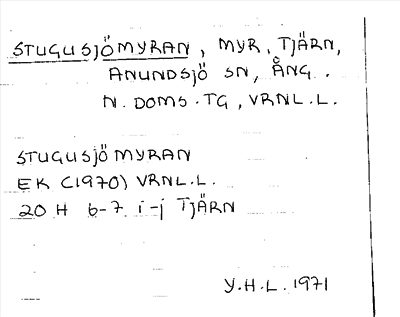 STUGUSJÖMYRAN, MYR, TJÄRN,
ANUNDSJÖ SN, ÅNG.
N. DOMS. TG, VRNL.L.
STUGUSJÖMYRAN
EK (1970) VRNL.L.
20 H 6-7 i-j TJÄRN
Y.H.L. 1971